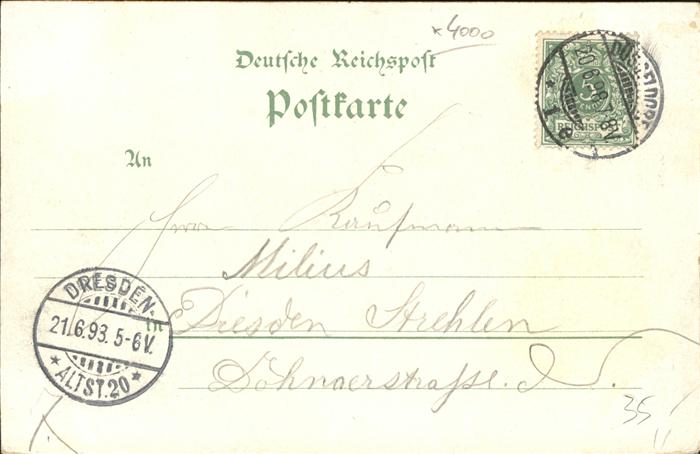 *4000
Deutsche Reichspost
Postkarte
5
REICHSPOST
DÜSSELDORF
* 1 e
An
Herrn Kaufmann
Milius
in Dresden Strehlen
Dohnaerstraße.
DRESDEN-
21.6.93. 5-6V.
* ALTST.20 *
35